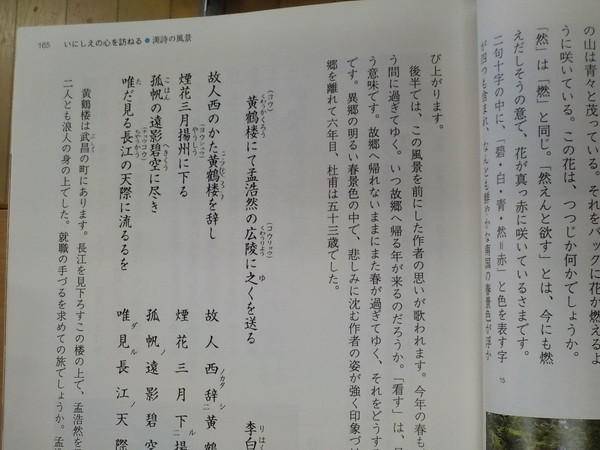 165 いにしえの心を訪ねる●漢詩の風景
の山は青々と茂っている。それをバックに花が燃えるよ
うに咲いている。この花は、つつじか何かでしょうか。
「然」は「燃」と同じ。「然えんと欲す」とは、今にも燃
えだしそうの意で、花が真っ赤に咲いているさまです。
二句十字の中に、「碧・白・青・然=赤」と色を表す字
が四つも含まれ、なんとも鮮やかな南国の春景色が浮か
15
び上がります。
後半では、この風景を前にした作者の思いが歌われます。今年の春も
う間に過ぎてゆく。いつ故郷へ帰る年が来るのだろうか。「看す」は、
う意味です。故郷へ帰れないままにまた春が過ぎてゆく、それをどうする
です。異郷の明るい春景色の中で、悲しみに沈む作者の姿が強く印象づ
郷を離れて六年目、杜甫は五十三歳でした。
黄鶴楼にて孟浩然の広陵に之くを送る
李白
故人西のかた黄鶴楼を辞し
煙花三月揚州に下る
孤帆の遠影碧空に尽き
唯だ見る長江の天際に流るるを
故人西ノカタ辞シ黄鶴
煙花三月下ル揚
孤帆ノ遠影碧空
唯ダ見ル長江ノ天際
黄鶴楼は武昌の町にあります。長江を見下ろすこの楼の上で、孟浩然を
二人とも浪人の身の上でした。就職の手づるを求めての旅でしょうか。孟